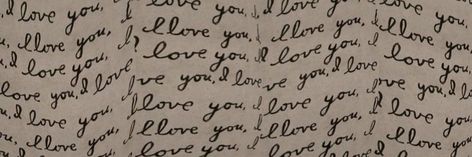 I love you, I love you, I love you, I love you,
I love you, I love you, I love you, I love you,
I love you, love you, I love you, love you,
love you, I love you, I love you, I love you,
I love you, I love you, I love you, I love you,
I love you, I love you, I love you, I love you,
I love you, I love you,